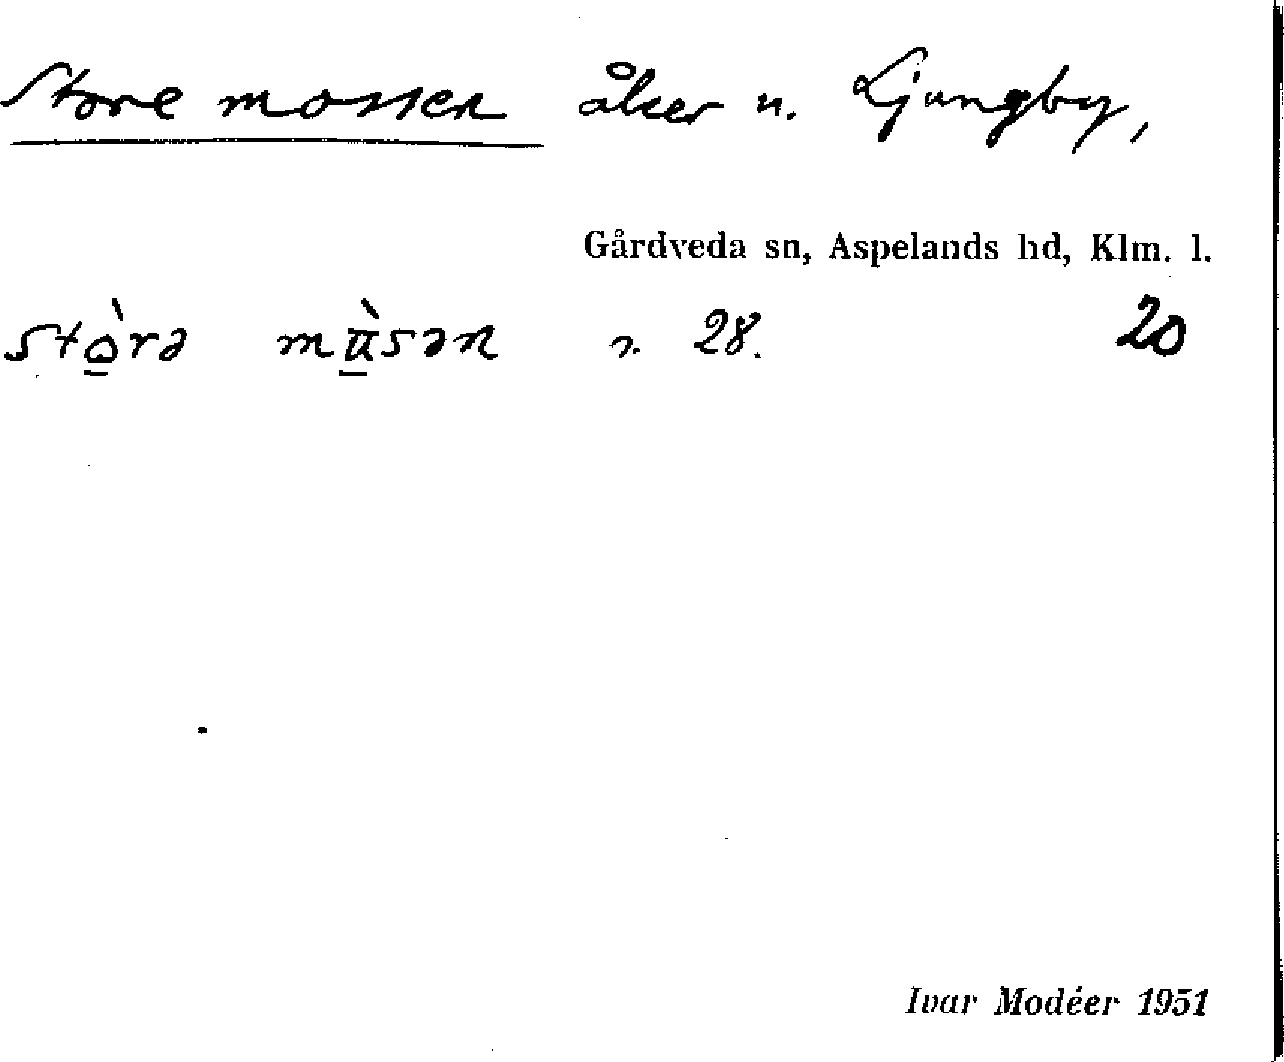 Store mossen åker u. Ljungby,
Gårdveda sn, Aspelands hd, Klm. l.
stòrə mùsən n. 28. 20
Ivar Modéer 1951